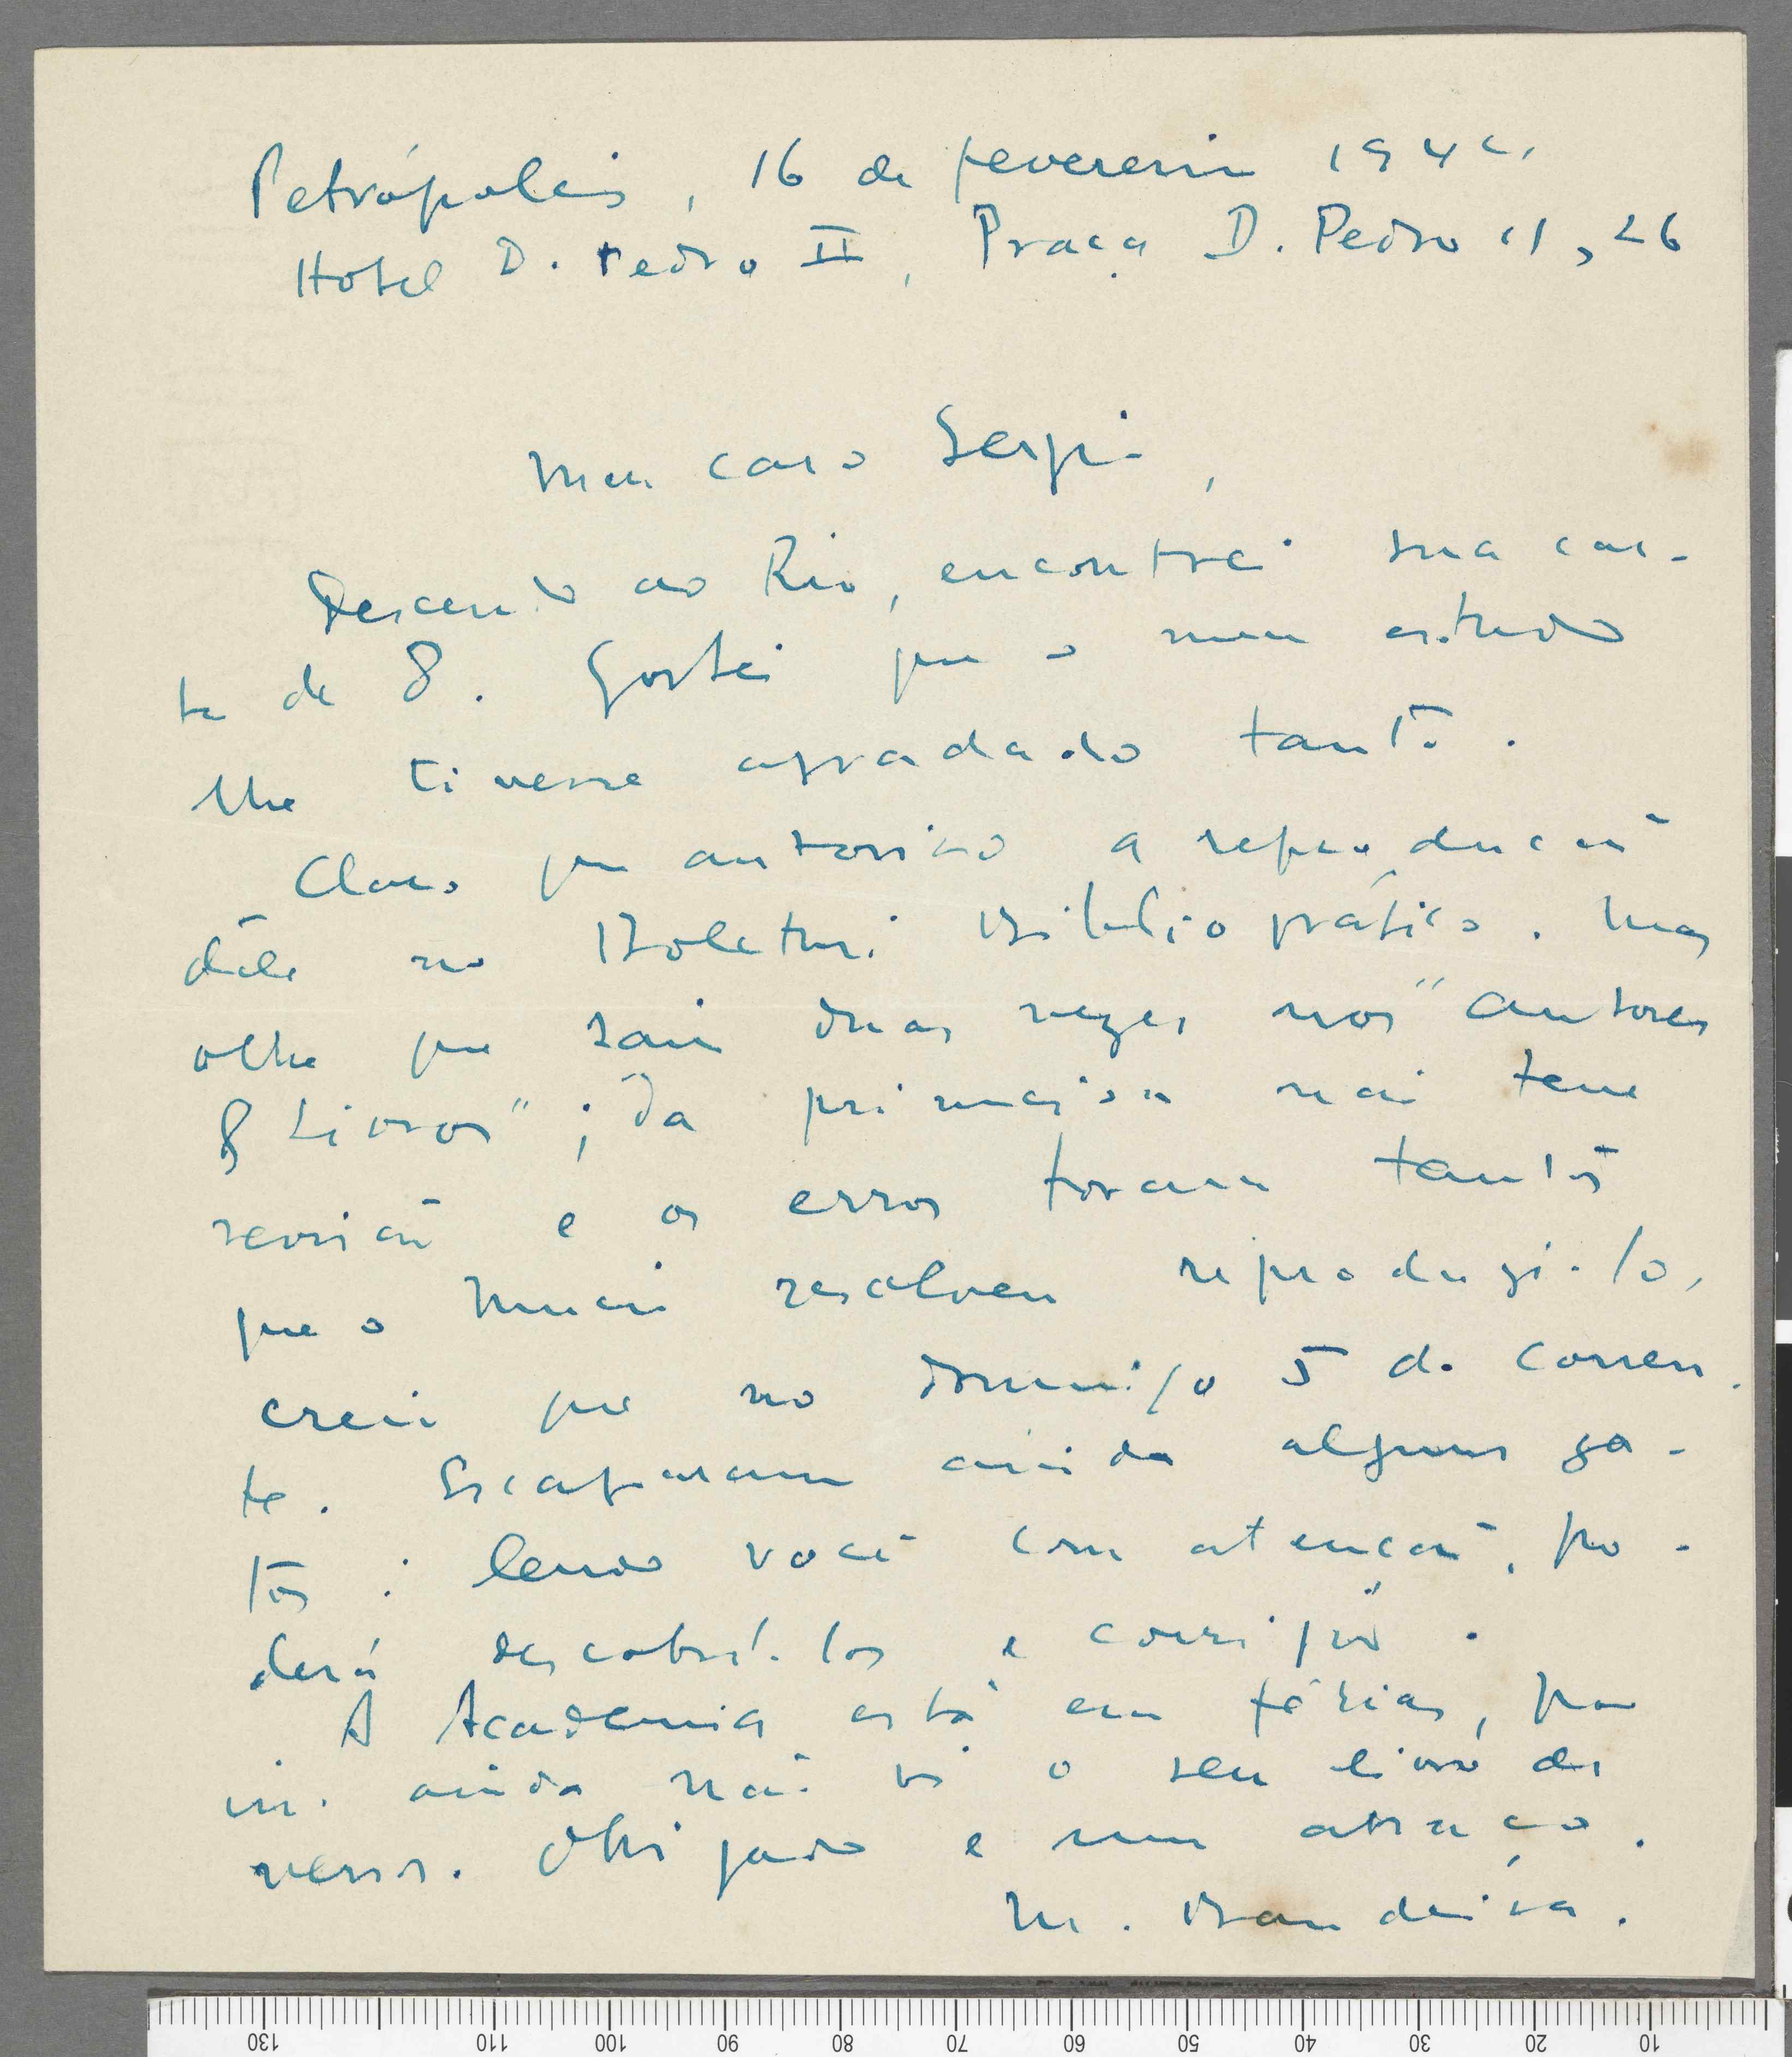 Petrópolis, 16 de fevereiro 194
Hotel D. Pedro II, Praça D. Pedro II, 26
Meu caro Sergio,
Descendo ao Rio, encontrei sua car-
ta de 8. Gostei que o meu estudo
lhe tivesse agradado tanto.
Claro que autorizo a reprodução
dêle no Boletim Bibliográfico. Mas
olhe que saiu duas vezes nos "Autores
& Livros"; da primeira não teve
revisão e os erros foram tantos
que o Mucio resolveu reproduzi-lo,
creio que no domingo 5 do corren-
te. Escaparam ainda alguns ga-
tos: lendo você com atenção, po-
derá descobri-los e corrigir.
A Academia está em férias, por
isso ainda não vi o seu livro de
versos. Obrigado e um abraço.
M. Bandeira.
130 110 100 90 80 70 60 50 40 30 20 10